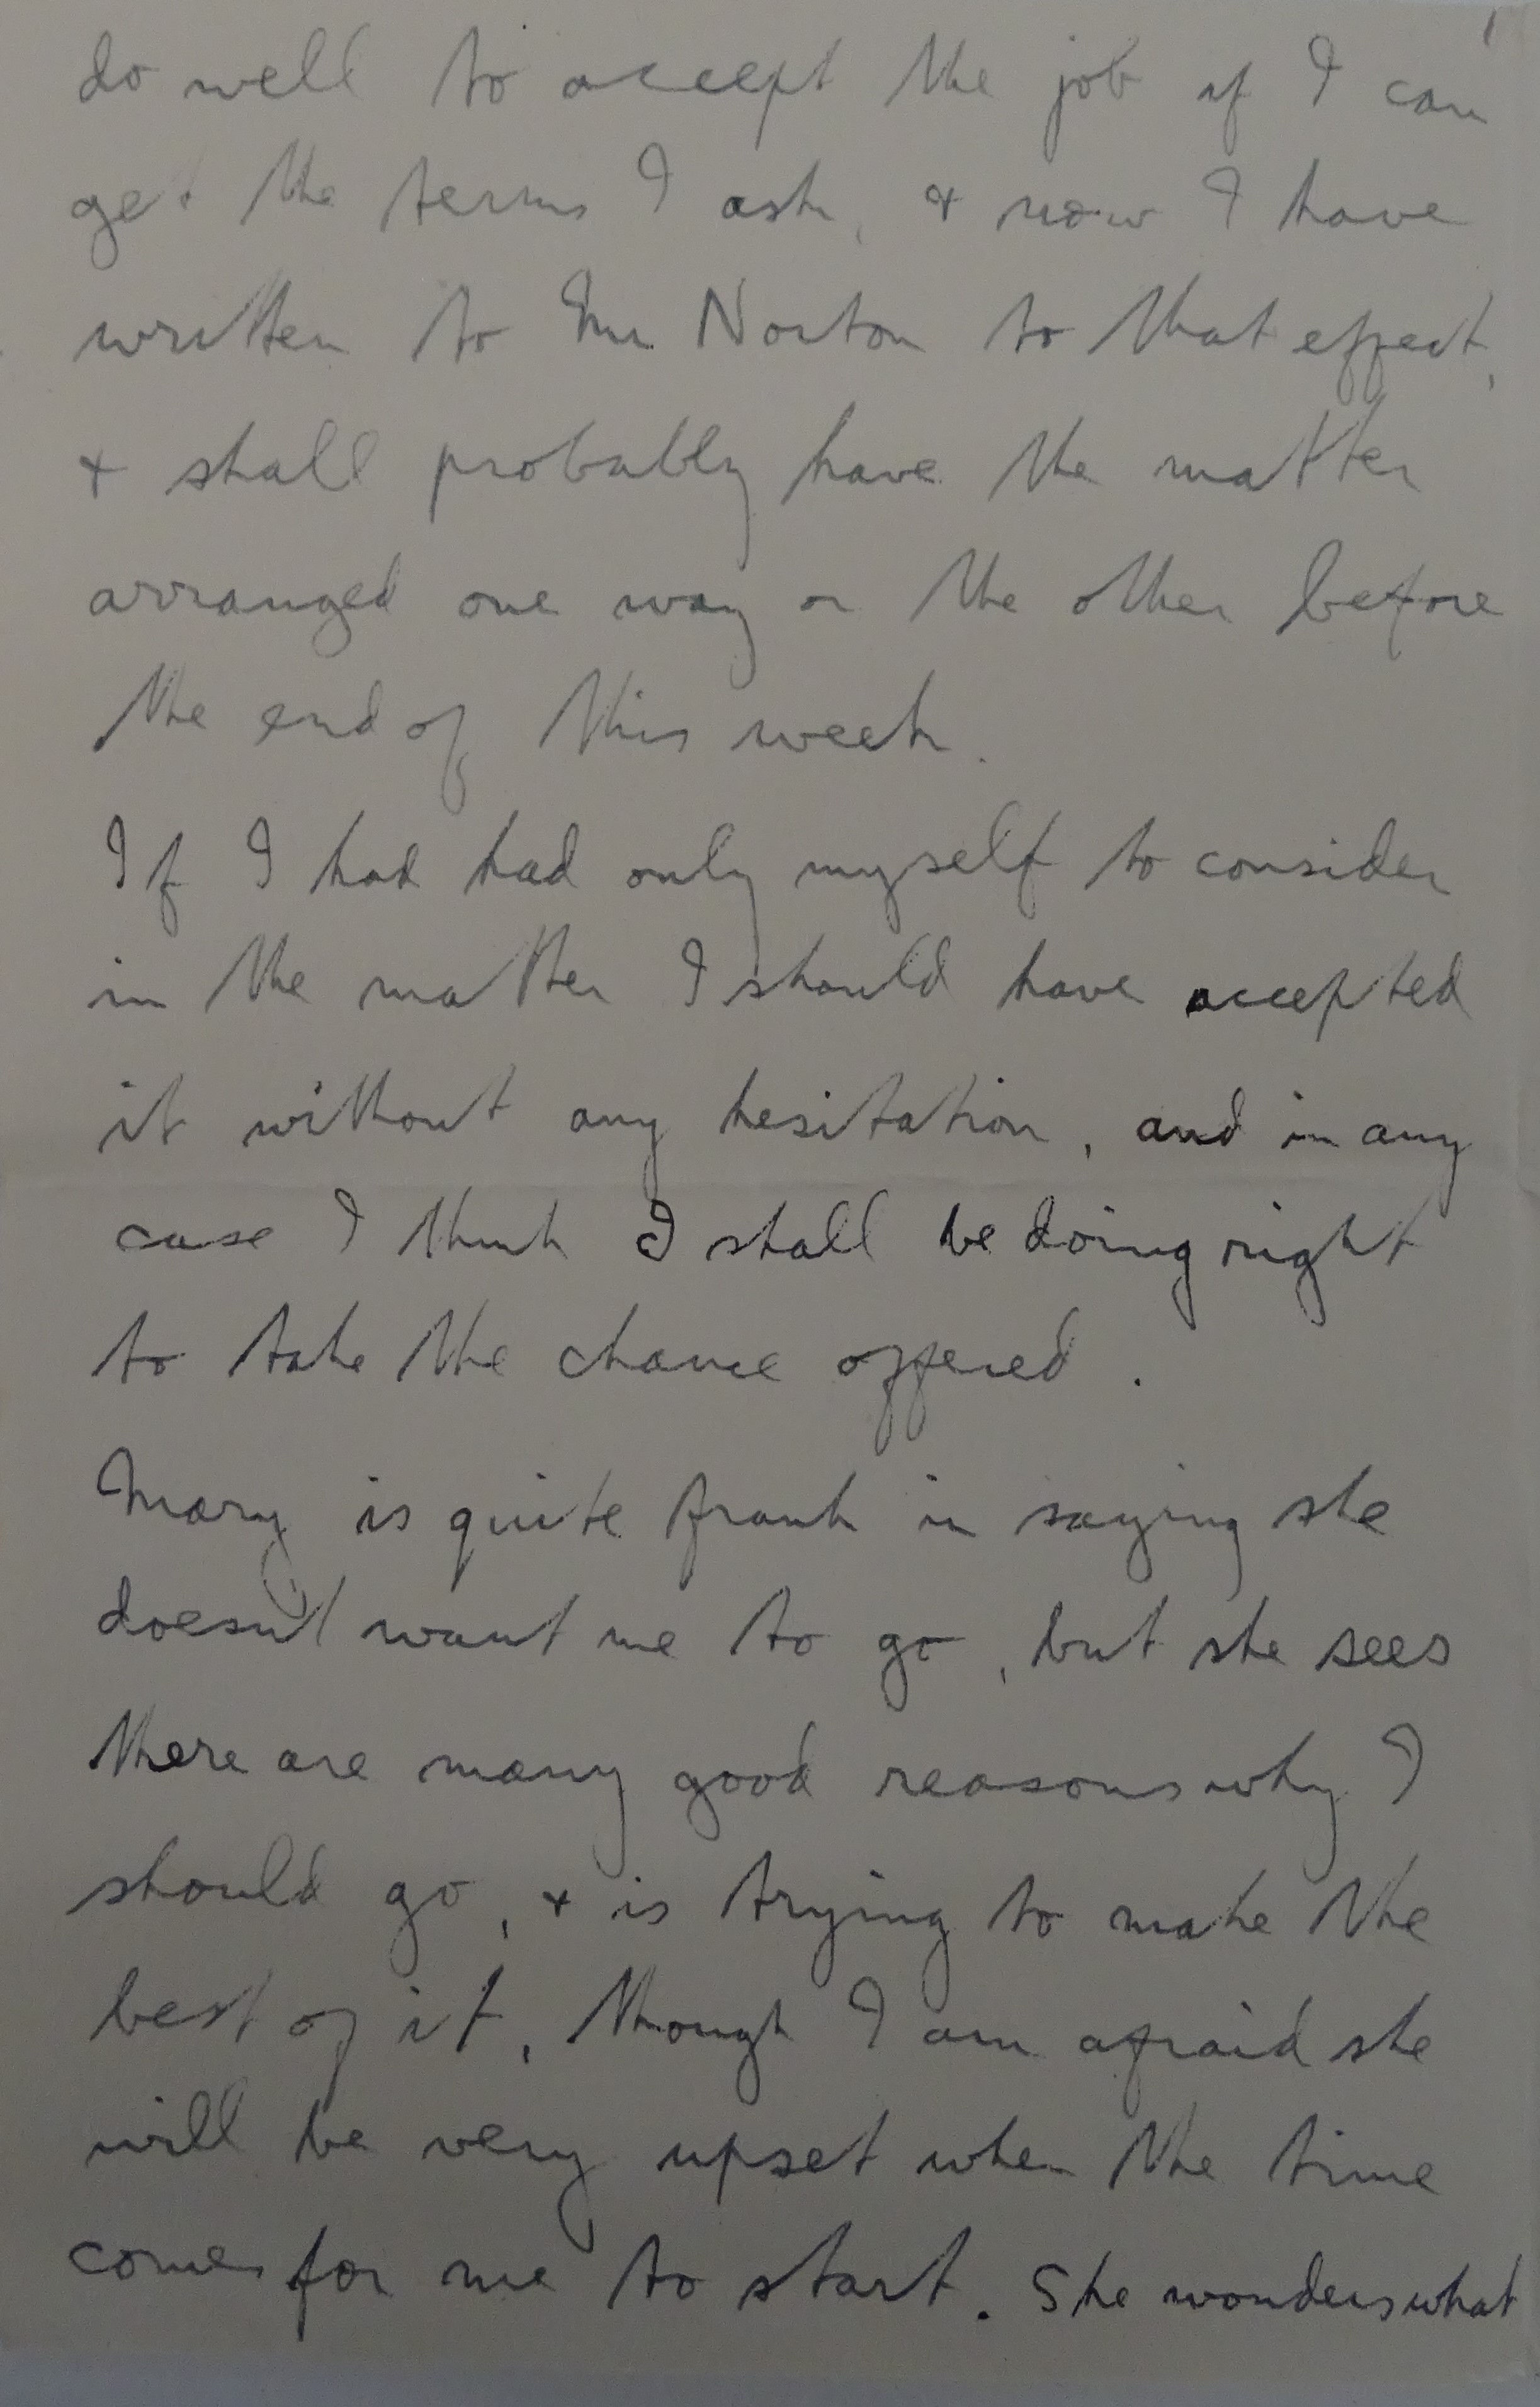 do well to accept the job if I can
get the terms I ask, & now I have
written to Mr Norton to that effect,
& shall probably have the matter
arranged one way or the other before
the end of this week.
If I had had only myself to consider
in the matter I should have accepted
it without any hesitation, and in any
case I think I shall be doing right
to take the chance offered.
Mary is quite frank in saying she
doesn't want me to go, but she sees
there are many good reasons why I
should go, & is trying to make the
best of it, though I am afraid she
will be very upset when the time
comes for me to start. She wonders what